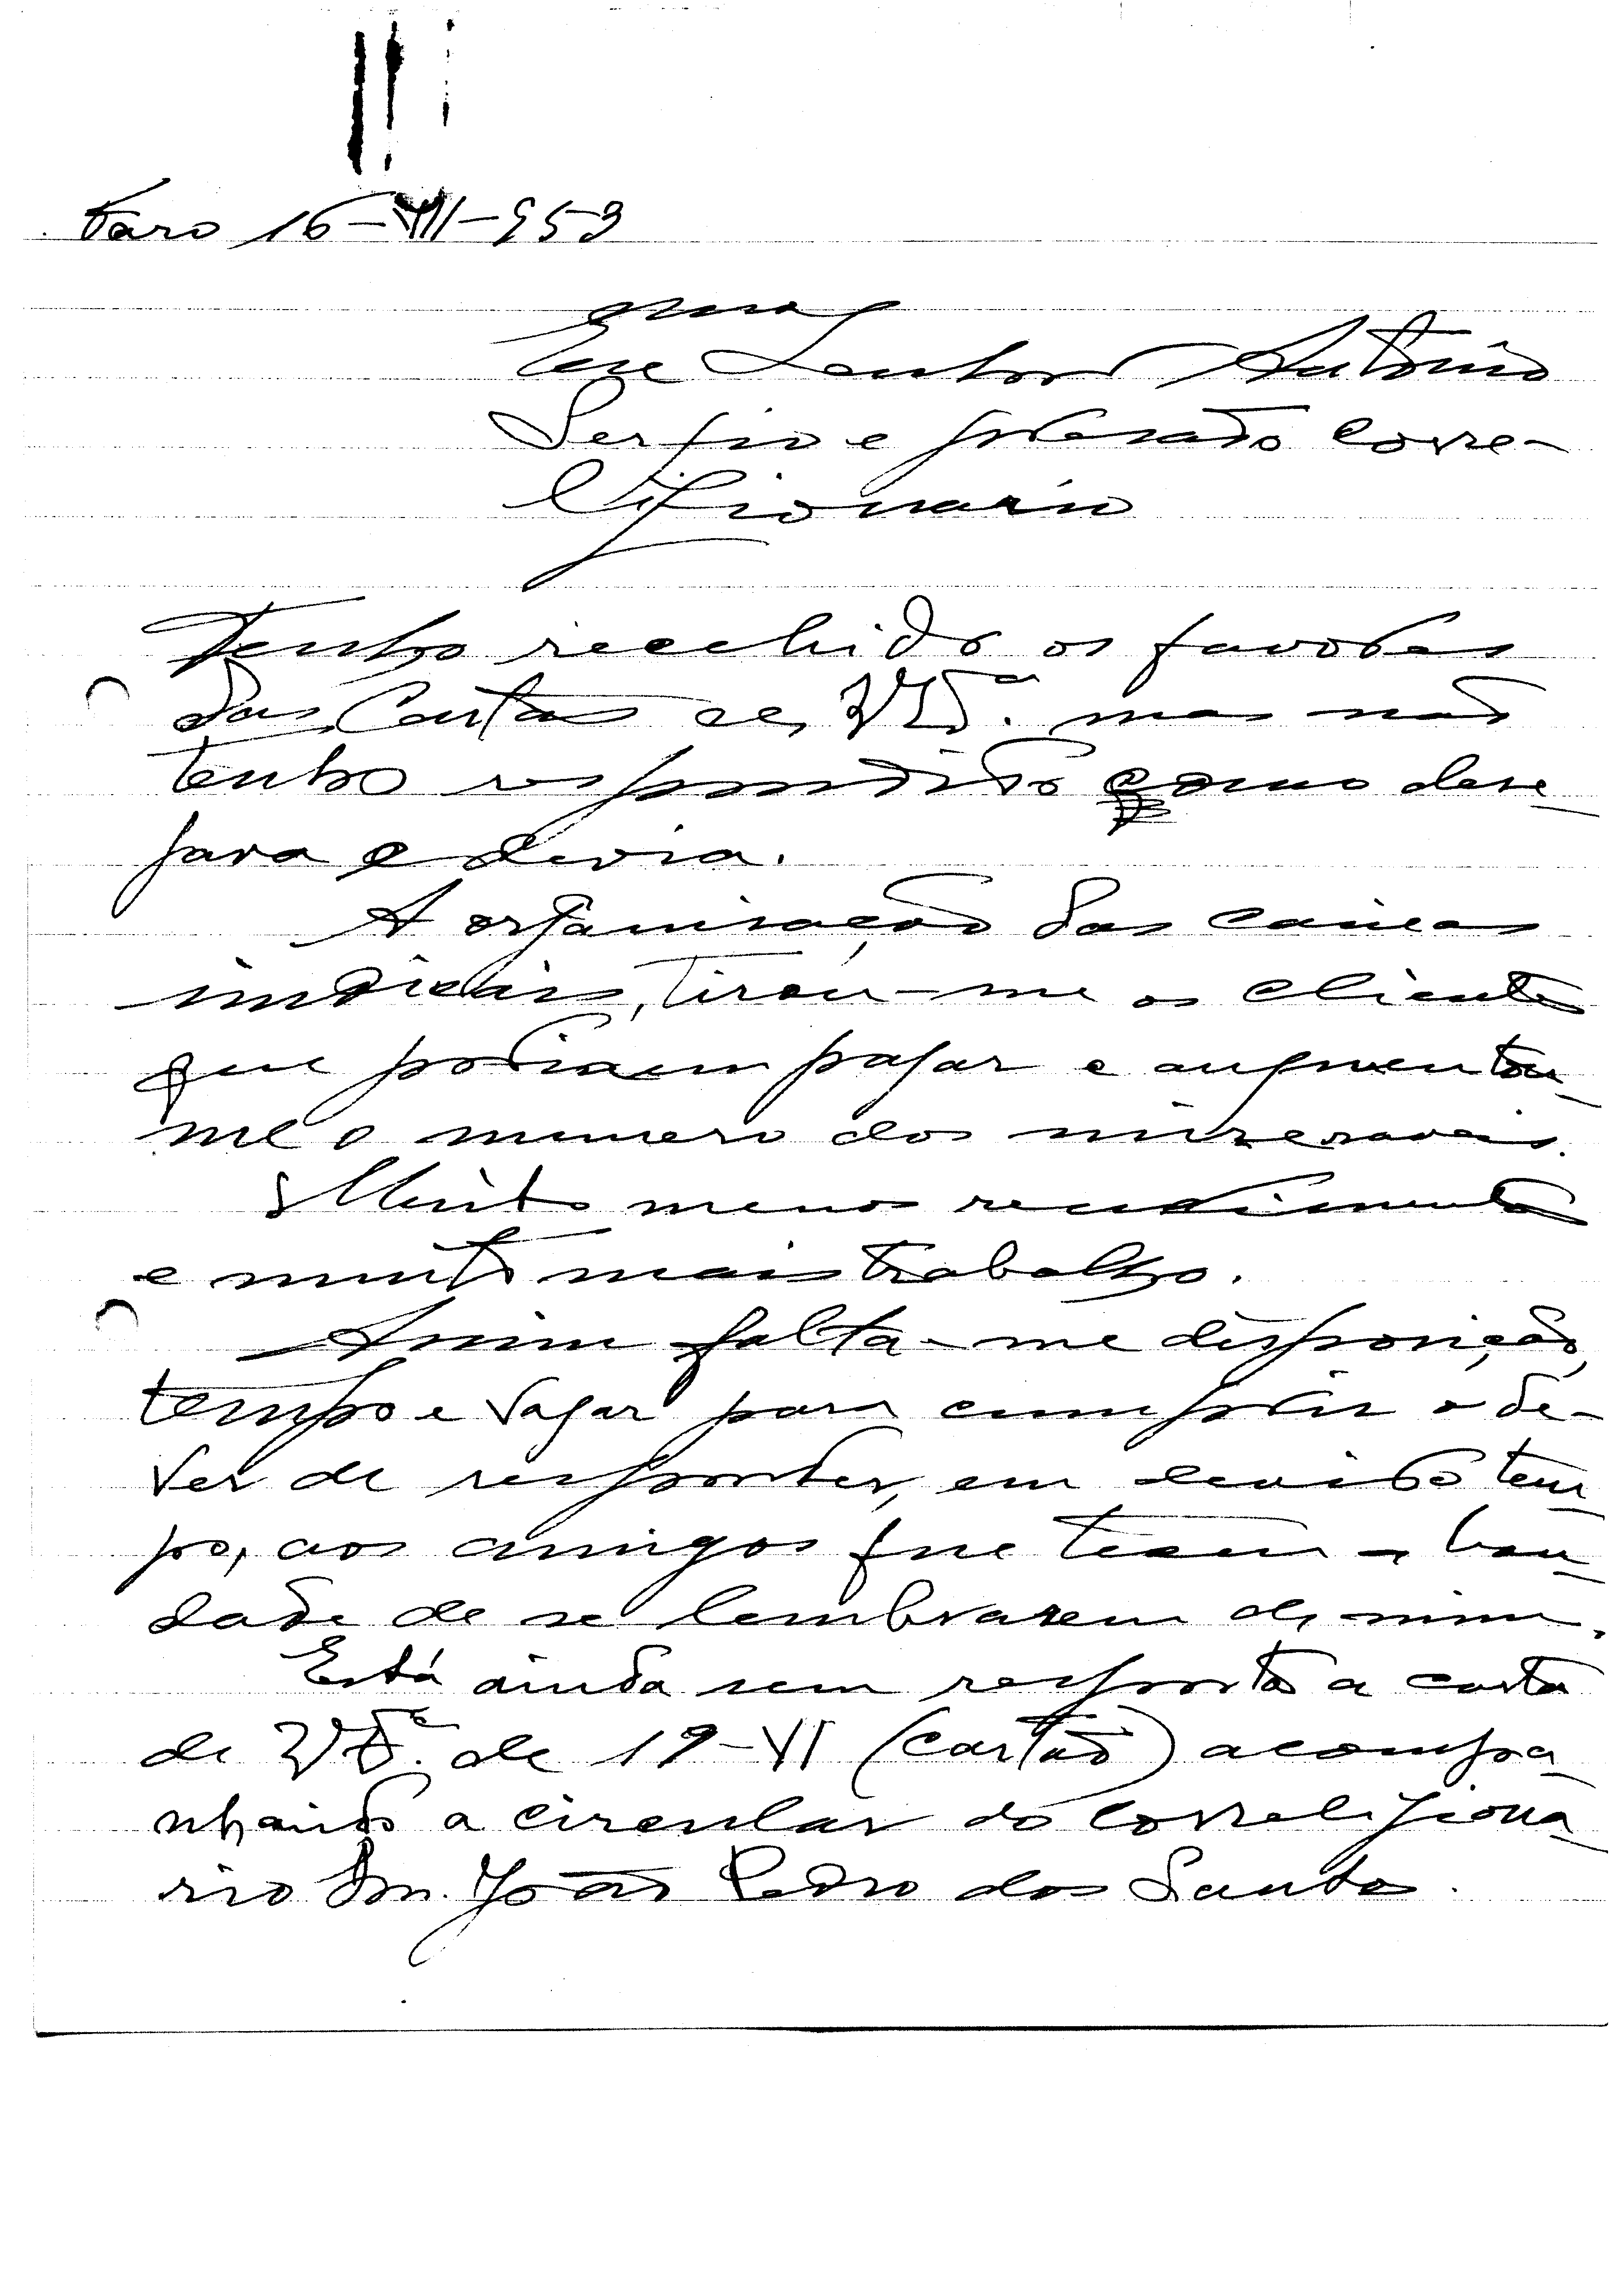 Faro 16-VII-953
Exmo
Senhor António
Sergio e presado corre-
ligionario
Tenho recebido os favores
das Cartas de V. Exª. mas não
tenho respondido como dese-
java e devia.
A organisação das caixas
sindicais, tirou-me os clientes
que podiam pagar e augmentou-
me o numero dos miseraveis.
Muito menos rendimento
e muito mais trabalho.
Assim falta-me disposição,
tempo e vagar para cumprir o de-
ver de responder, em devido tem-
po, aos amigos que teem a bon-
dade de se lembrarem de mim.
Está ainda sem resposta a carta
de V. Exª. de 19-VI (cartão) acompa-
nhando a circular do correligiona-
rio Snr. João Pedro dos Santos.